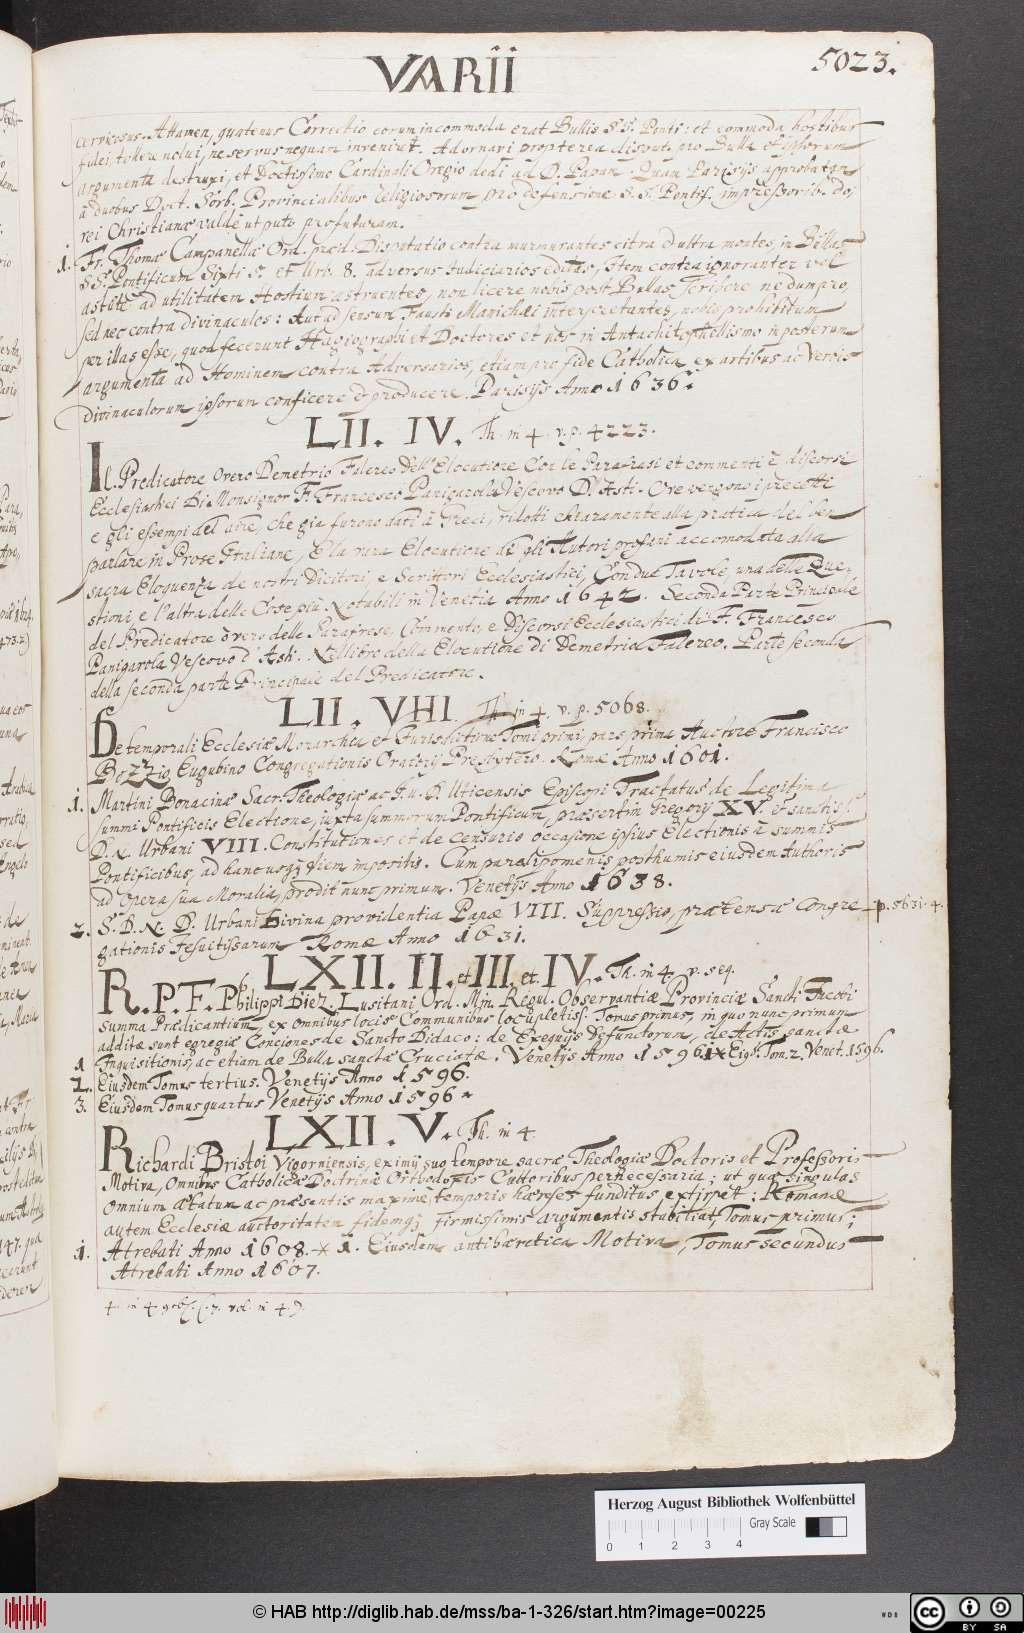 VARII
5023.
cervicosus. Attamen, quatenus Correctio eorum incommoda erat Bullis S. S. Ponti: et commoda hostibus
fidei, tollere nolui, ne servus nequam invenirer. Adornavi propterea disput. pro Bulla et ipsorum
argumenta destruxi, et Doctissimo Cardinali Oregio dedi ad D. Papam. Quam Parisijs approbatam
à duobus Doct. Sorb. Provincialibus religiosorum pro defensione S. S. Pontif. impressorib. do,
rei Christianæ valdè ut puto profuturam.
1. Fr. Thomæ Campanellæ Ord. præd. Disputatio contra murmurantes citra et ultra montes, in Bullas
S. S. Pontificum Sixti 5. et Urb. 8. adversus Iudiciarios editas, Item contra ignoranter vel
astutè ad utilitatem Hostium astruentes, non licere nobis post Bullas scribere nedum pro,
sed nec contra divinaculos: Aut ad sensum Fausti Manichæi interpretantes, nobis prohibitum
per illas esse, quod fecerunt Hagiographi et Doctores et nos in Antachitophellismo in posterum
argumenta ad Hominem contra Adversarios, etiam pro fide Catholica, ex artibus ac Verbis
divinaculorum ipsorum conficere & producere. Parisijs Anno 1636.
LII. IV. Th. in 4. v. p. 4223.
Il Predicatore Overo Demetrio Falereo Dell' Elocutione Con le Parafrasi et commenti è discorsi
Ecclesiastici Di Monsignor F. Francesco Panigarola Vescovo D' Asti. Ove vengono i precetti
e gli essempi del dire, che gia furono dati à Greci, ridotti chiaramente alla pratica del ben
parlare in Prose Italiane, E la vana Elocutione di gli Autori profani accomodata alla
sacra Eloquenza de nostri Dicitori, e Scrittori Ecclesiastici, Con due Tavole, una delle Que-
stioni e l'altra delle Cose piu Notabili in Venetia Anno 1642. Seconda Parte Principale
del Predicatore òvero delle Parafrase, Commento, e Discorsi Ecclesiastici di F. Francesco
Panigarola Vescovo d' Asti. Nel libro della Elocutione di Demetrio Falereo. Parte seconda
della seconda parte Principale del Predicatore.
LII. VHI. Th. in 4. v. p. 5068.
De temporali Ecclesiæ Monarchia et Jurisdictione Tomi primi, pars prima Auctore Francisco
Bozzio Eugubino Congregationis Oratorij Presbytero. Romæ Anno 1601.
1. Martini Bonacinæ Sacr. Theologiæ ac I. U. D. Uticensis Episcopi Tractatus de Legitima
summi Pontificis Electione, iuxta summorum Pontificum, præsertim Gregorij XV. & sanctiss.
D. N. Urbani VIII. Constitutiones et de censuris occasione ipsius Electionis à summis
Pontificibus, ad hanc usq; diem impositis. Cum paralipomenis posthumis eiusdem Authoris
ad opera sua Moralia, prodit nunc primum. Venetijs Anno 1638.
2. S. D. N. D. Urbani Divina providentia Papæ VIII. Suppressio, prætensæ Congre- p. 5631. 4.
gationis Jesuitissarum Romæ Anno 1631.
LXII. II. et III. et IV. Th. in 4. v. seq.
R. P. F. Philippi Diez. Lusitani Ord. Min. Regul. Observantiæ Provinciæ Sancti Jacobi
Summa Prædicantium, ex omnibus locis Communibus locupletiss: Tomus primus, in quo nunc primum
additæ sunt egregiæ Conciones de Sancto Didaco: de Exequijs Defunctorum, de Actis sanctæ
1 Inquisitionis, ac etiam de Bulla sanctæ Cruciatæ. Venetijs Anno 1596. 1 × Eiusd. Tom. 2. Venet. 1596.
2. Eiusdem Tomus tertius. Venetijs Anno 1596.
3. Eiusdem Tomus quartus Venetijs Anno 1596.
LXII. V. Th. in 4.
Richardi Bristoi Vigorniensis, eximij suo tempore sacræ Theologiæ Doctoris et Professoris
Motiva, Omnibus Catholicæ Doctrinæ Orthodoxis Cultoribus pernecessaria; ut quæ singulas
omnium ætatum ac præsentis maxime temporis hæreses funditus extirpet: Romanæ
autem Ecclesiæ auctoritatem fidemq; firmissimis argumentis stabiliat, Tomus primus;
1. Atrebati Anno 1608. × 1. Eiusdem antihæretica Motiva, Tomus secundus
Atrebati Anno 1607.
Herzog August Bibliothek Wolfenbüttel
Gray Scale
0 1 2 3 4
© HAB http://diglib.hab.de/mss/ba-1-326/start.htm?image=00225
WDB
cc BY SA